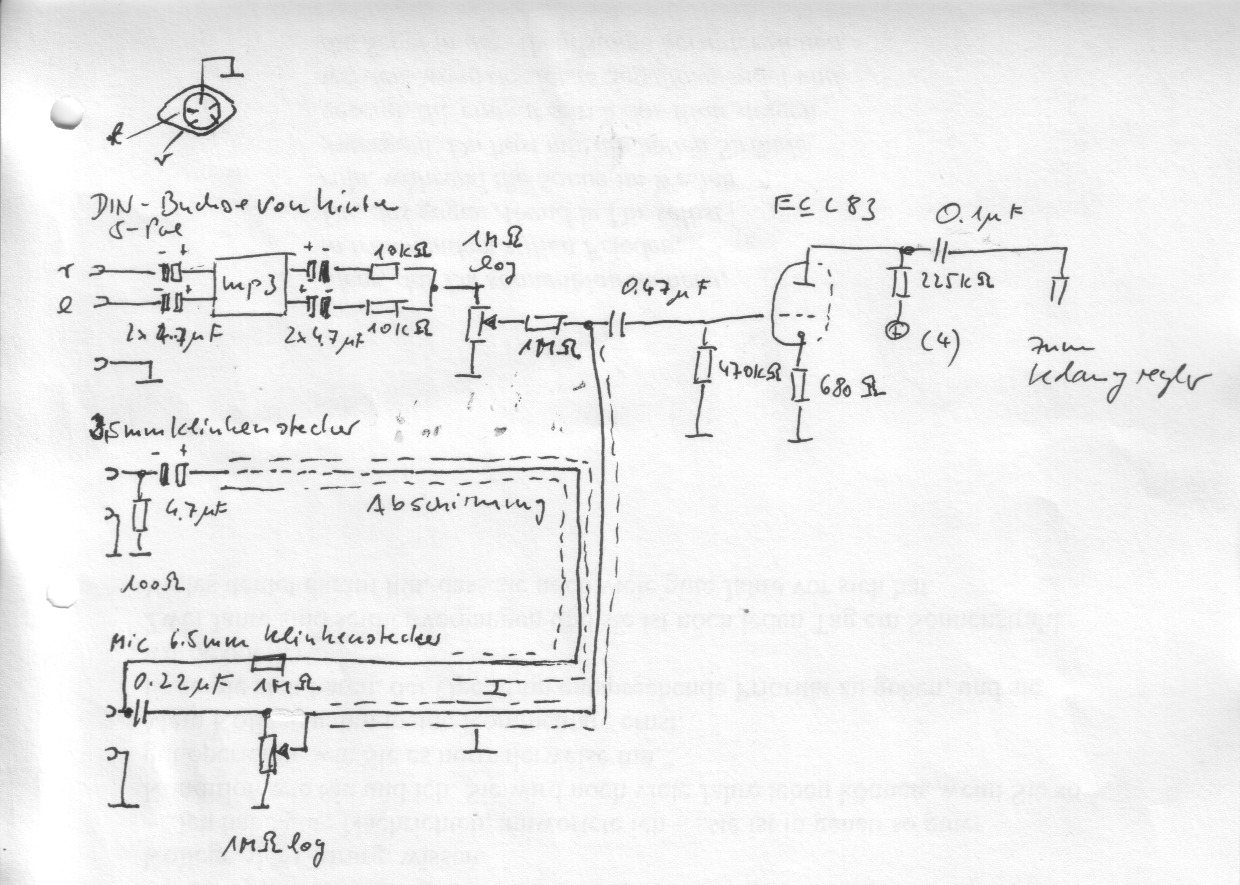 l
r
DIN-Buchse von hinten
5-Pol
ECC83
0.1µF
1MΩ
log
r
l
mp3
10kΩ
10kΩ
2x 4.7µF
2x 4,7µF
1MΩ
0,47µF
470kΩ
680Ω
225kΩ
(4)
zum
Klangregler
3,5mm klinkenstecker
4.7µF
Abschirmung
100Ω
Mic 6.5mm Klinkenstecker
0.22µF 1MΩ
1MΩ log